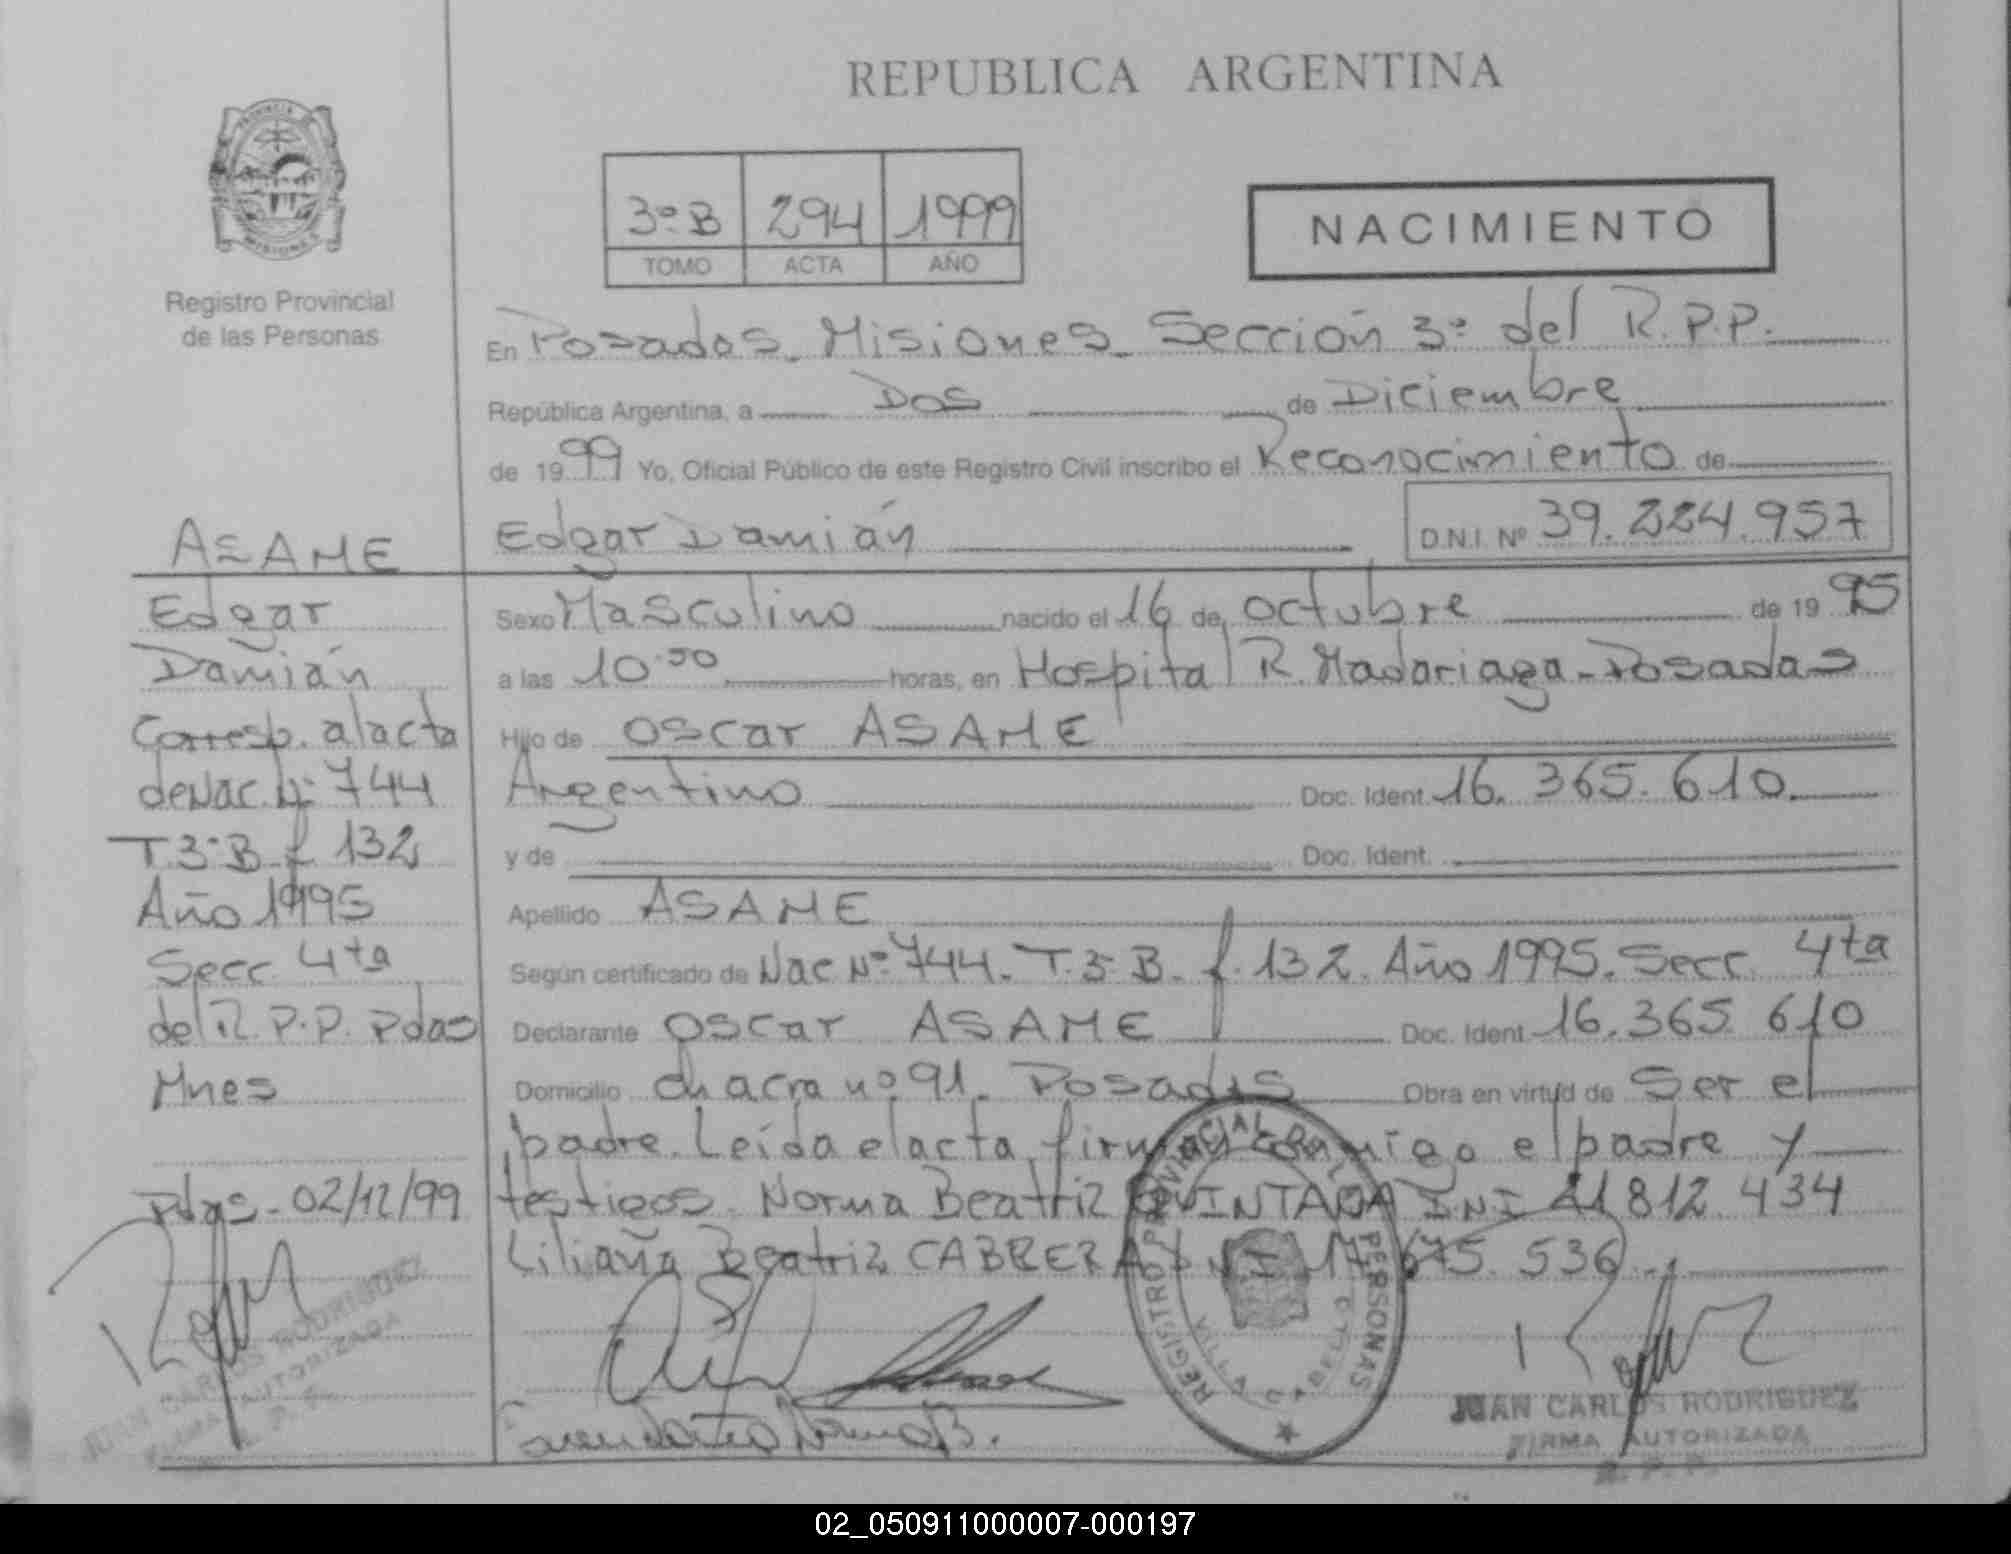 REPUBLICA ARGENTINA
PROVINCIA DE MISIONES
Registro Provincial
de las Personas
3º B 294 1999
TOMO ACTA AÑO
NACIMIENTO
En Posadas. Misiones. Sección 3º del R.P.P.
República Argentina, a Dos de Diciembre
de 1999 Yo, Oficial Público de este Registro Civil inscribo el Reconocimiento de
Edgar Damián D.N.I. Nº 39.224.957
Sexo Masculino nacido el 16 de Octubre de 1995
a las 10:50 horas, en Hospital R. Madariaga - Posadas
Hijo de Oscar ASAME
Argentino Doc. Ident. 16.365.610.
y de Doc. Ident.
Apellido ASAME
Según certificado de Nac Nº 744. T.3º B. f. 132. Año 1995. Secc. 4ta
Declarante Oscar ASAME Doc. Ident. 16.365.610
Domicilio Chacra nº 91. Posadas Obra en virtud de Ser el
padre. Leída el acta firman conmigo el padre y
testigos. Norma Beatriz D.N.I. 812.434
Liliana Beatriz CABRERA D.N.I. 17.675.536
ASAME
Edgar
Damián
Corresp. al acta
de Nac. Nº 744
T.3º B f 132
Año 1995
Secc. 4ta
del R.P.P. Pdas
Mnes
Pdas - 02/12/99
JUAN CARLOS RODRIGUEZ
FIRMA AUTORIZADA
R. P. P.
REGISTRO PROVINCIAL DE LAS PERSONAS
VILLA CABELLO
JUAN CARLOS RODRIGUEZ
FIRMA AUTORIZADA
R. P. P.
02_050911000007-000197